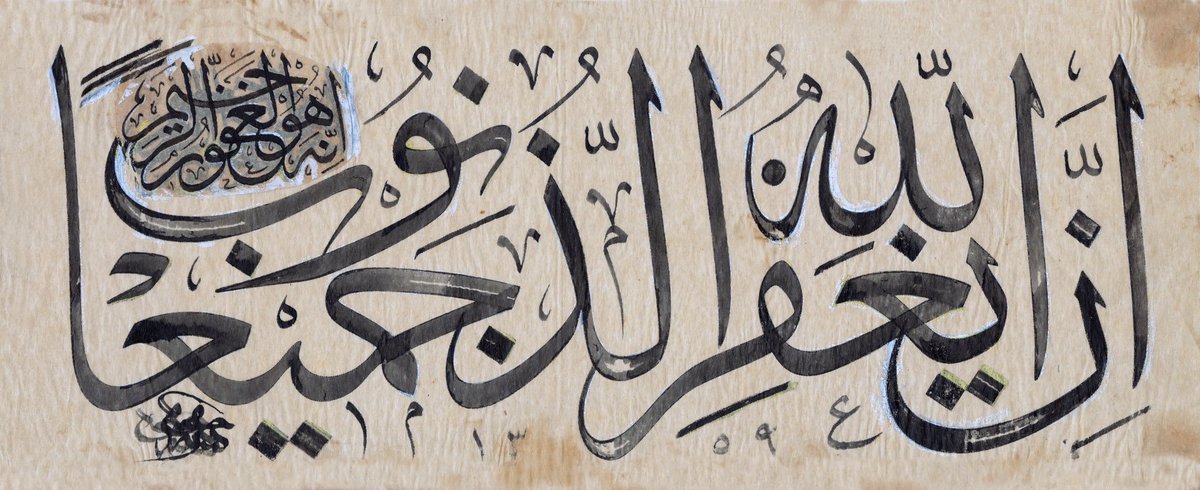 إِنَّ اللهَ يَغْفِرُ الذُّنُوبَ جَمِيعًا
إنه هو الغفور الرحيم
١٣٥٩